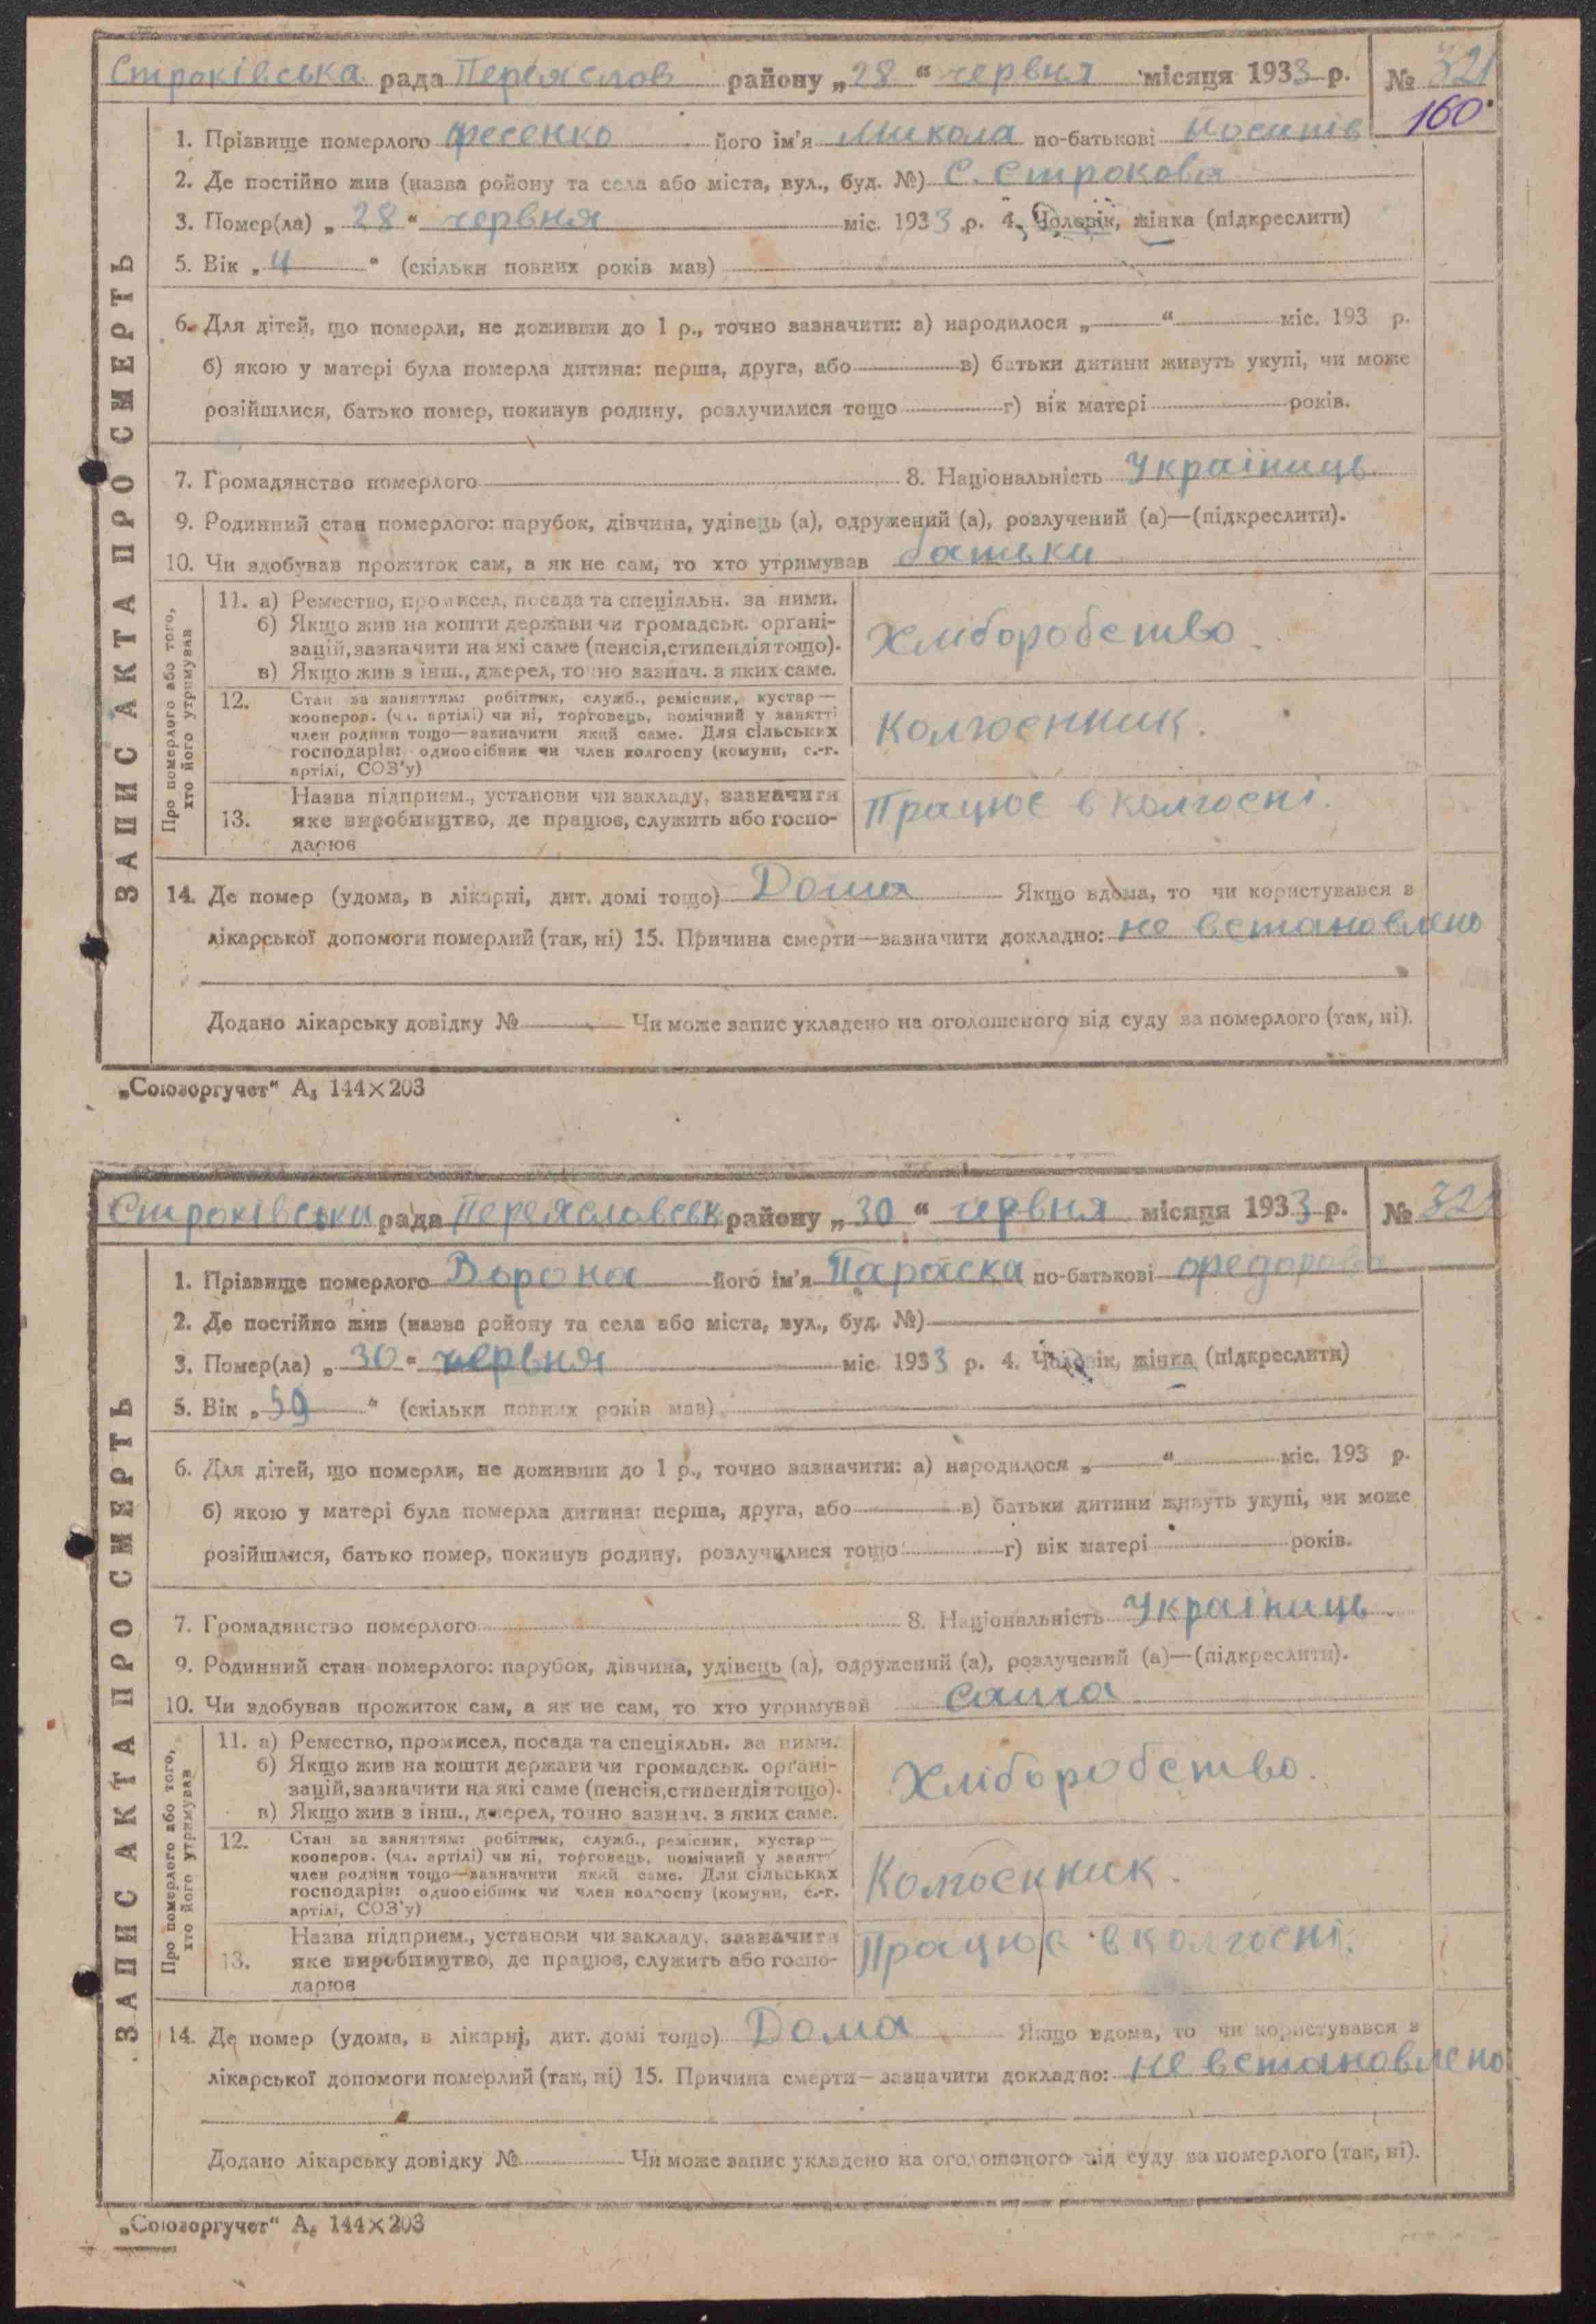 Строківська рада Переяслов району „28“ червня місяця 1933 р. № 321
160
1. Прізвище померлого Фесенко його ім'я Микола по-батькові Йосипів
2. Де постійно жив (назва ройону та села або міста, вул., буд. №) С. Строкова
3. Помер(ла) „28“ червня міс. 1933 р. 4. Чоловік, жінка (підкреслити)
5. Вік „4“ (скільки повних років мав)
6. Для дітей, що померли, не доживши до 1 р., точно зазначити: а) народилося „ “ міс. 193 р.
б) якою у матері була померла дитина: перша, друга, або в) батьки дитини живуть укупі, чи може
розійшлися, батько помер, покинув родину, розлучилися тощо г) вік матері років.
7. Громадянство померлого 8. Національність Україниць
9. Родинний стан померлого: парубок, дівчина, удівець (а), одружений (а), розлучений (а)—(підкреслити).
10. Чи здобував прожиток сам, а як не сам, то хто утримував батьки
ЗАПИС АКТА ПРО СМЕРТЬ
Про померлого або того, хто його утримував
11. а) Ремество, промисел, посада та спеціяльн. за ними.
б) Якщо жив на кошти держави чи громадськ. органі-
зацій, зазначити на які саме (пенсія, стипендія тощо).
в) Якщо жив з інш., джерел, точно зазнач. з яких саме.
Хліборобство.
12. Стан за заняттям: робітник, служб., ремісник, кустар—
кооперов. (чл. артілі) чи ні, торговець, помічний у занятті
член родини тощо—зазначити який саме. Для сільських
господарів: одноосібник чи член колгоспу (комуни, с.-г.
артілі, СОЗ'у)
Колгоспник.
13. Назва підприєм., установи чи закладу, зазначити
яке виробництво, де працює, служить або госпо-
дарює
Працює в колгоспі.
14. Де помер (удома, в лікарні, дит. домі тощо) Дома Якщо вдома, то чи користувався з
лікарської допомоги померлий (так, ні) 15. Причина смерти—зазначити докладно: не встановлено
Додано лікарську довідку № Чи може запис укладено на оголошеного від суду за померлого (так, ні).
„Союзоргучет“ А₅ 144×203
Строківська рада Переясловськ району „30“ червня місяця 1933 р. №
1. Прізвище померлого Ворона його ім'я Параска по-батькові Федорова
2. Де постійно жив (назва ройону та села або міста, вул., буд. №)
3. Помер(ла) „30“ червня міс. 1933 р. 4. Чоловік, жінка (підкреслити)
5. Вік „59“ (скільки повних років мав)
6. Для дітей, що померли, не доживши до 1 р., точно зазначити: а) народилося „ “ міс. 193 р.
б) якою у матері була померла дитина: перша, друга, або в) батьки дитини живуть укупі, чи може
розійшлися, батько помер, покинув родину, розлучилися тощо г) вік матері років.
7. Громадянство померлого 8. Національність Україниць
9. Родинний стан померлого: парубок, дівчина, удівець (а), одружений (а), розлучений (а)—(підкреслити).
10. Чи здобував прожиток сам, а як не сам, то хто утримував сама
ЗАПИС АКТА ПРО СМЕРТЬ
Про померлого або того, хто його утримував
11. а) Ремество, промисел, посада та спеціяльн. за ними.
б) Якщо жив на кошти держави чи громадськ. органі-
зацій, зазначити на які саме (пенсія, стипендія тощо).
в) Якщо жив з інш., джерел, точно зазнач. з яких саме.
Хліборобство.
12. Стан за заняттям: робітник, служб., ремісник, кустар—
кооперов. (чл. артілі) чи ні, торговець, помічний у занятті
член родини тощо—зазначити який саме. Для сільських
господарів: одноосібник чи член колгоспу (комуни, с.-г.
артілі, СОЗ'у)
Колгоспник.
13. Назва підприєм., установи чи закладу, зазначити
яке виробництво, де працює, служить або госпо-
дарює
Працює в колгоспі.
14. Де помер (удома, в лікарні, дит. домі тощо) Дома Якщо вдома, то чи користувався з
лікарської допомоги померлий (так, ні) 15. Причина смерти—зазначити докладно: не встановлено
Додано лікарську довідку № Чи може запис укладено на оголошеного від суду за померлого (так, ні).
„Союзоргучет“ А₅ 144×203